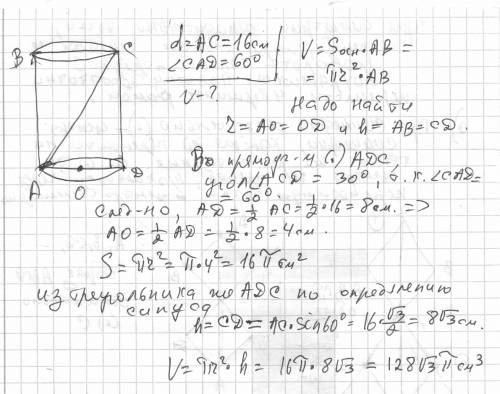 B
C
A
O
D
d=AC=16см
∠CAD=60°
V-?
V=Sосн·AB=
=πr²·AB
Надо найти
r=AO=OD и h=AB=CD.
В прямоуг-м ADC,
угол∠ACD=30°, т.к. ∠CAD=
=60°.
След-но, AD=½ AC=½·16=8см. =>
AO=½ AD=½·8=4см.
S=πr²=π·4²=16π см²
из треугольника же ADC по определению
синуса
h=CD=AC·sin60°=16·√3/2=8√3см.
V=πr²·h=16π·8√3=128√3π см³